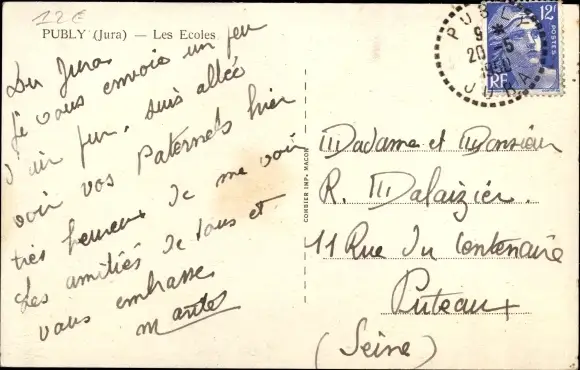 12€
PUBLY (Jura) — Les Ecoles
Du Jura
Je vous envoie un peu
d'air pur, suis allée
voir vos Paternels hier
très heureux de me voir
Les amitiés de tous et
vous embrasse
PUBLY
9 *
20 -5
1950
JURA
12F
POSTES
RF
CORBIER IMP. MACON
Madame et Monsieur
R. Malaizier
11 Rue du Centenaire
Puteaux
(Seine)